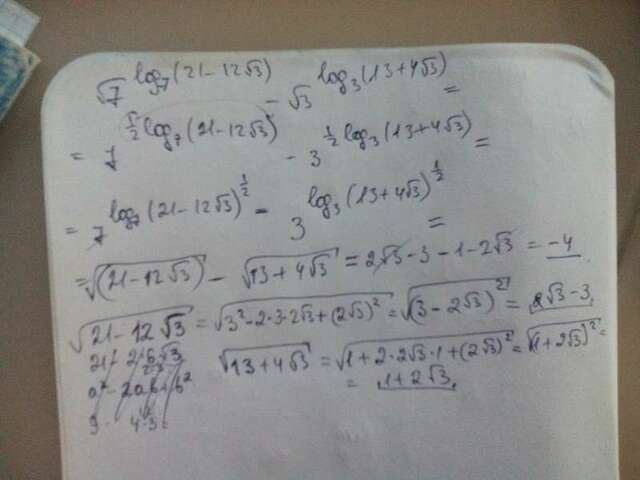 √7^log₇(21-12√3) - √3^log₃(13+4√3) =
= 7^½log₇(21-12√3) - 3^½log₃(13+4√3) =
= 7^log₇(21-12√3)^½ - 3^log₃(13+4√3)^½ =
= √(21-12√3) - √13+4√3 = 2√3-3-1-2√3 = -4
√21-12√3 = √3²-2·3·2√3+(2√3)² = √(3-2√3)² = 2√3-3
√13+4√3 = √1+2·2√3·1+(2√3)² = √(1+2√3)² =
= 1+2√3
a²-2ab+b²
9- 4·3=